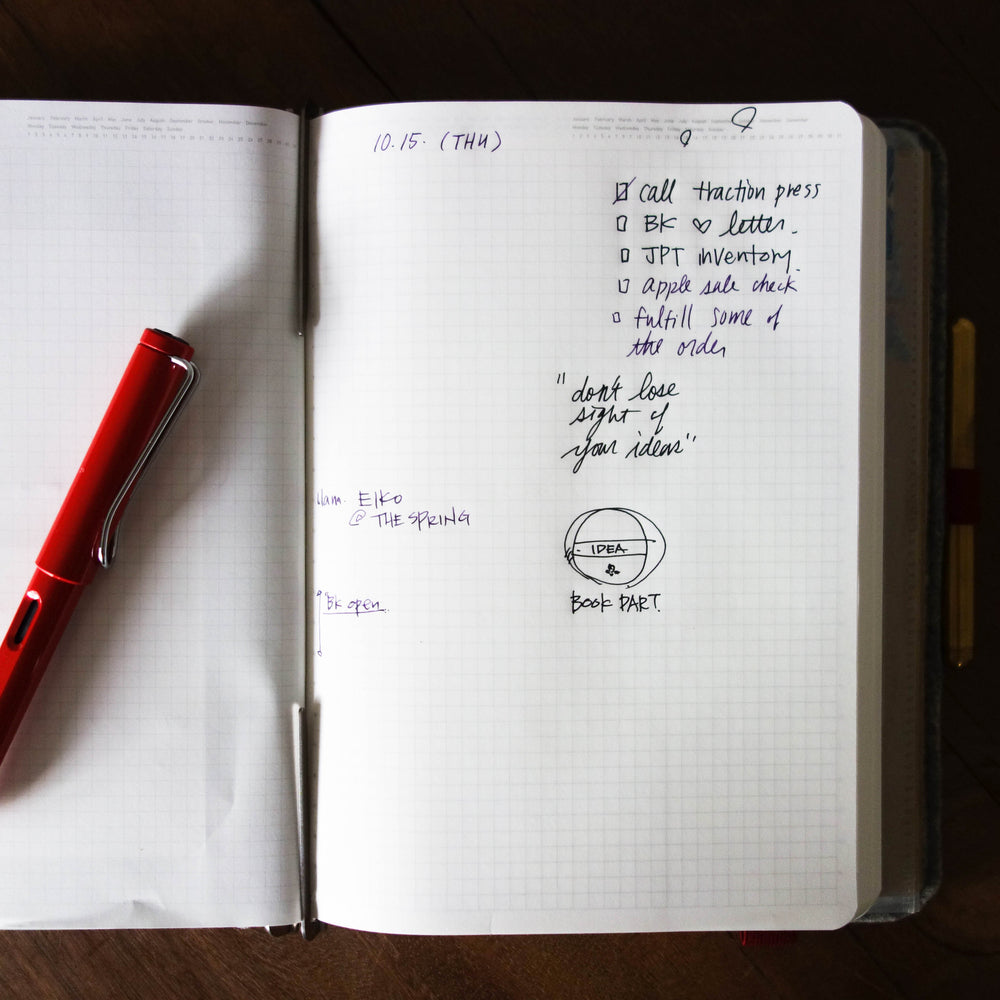 January February March April May June July August September October November December
Monday Tuesday Wednesday Thursday Friday Saturday Sunday
1 2 3 4 5 6 7 8 9 10 11 12 13 14 15 16 17 18 19 20 21 22 23 24 25 26 27 28 29 30 31
January February March April May June July August November December
Monday Tuesday Wednesday Thursday Friday Sunday
10.15. (THU)
call traction press
BK ♡ letter.
JPT inventory.
apple sale check
fulfill some of
the order
"don't lose
sight of
your ideas"
11am. EIKO
@ THE SPRING
IDEA
BOOK PART.
BK open.